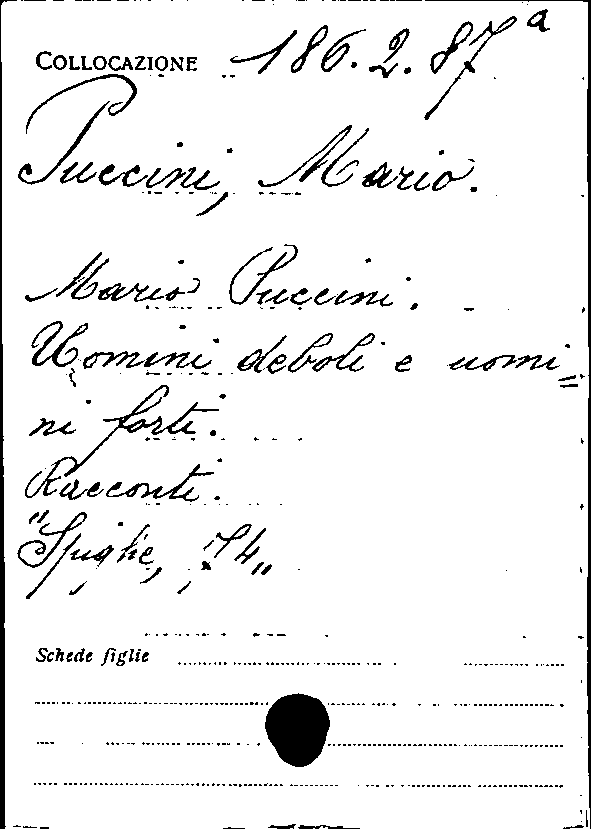 COLLOCAZIONE 186.2.87 a
Puccini, Mario.
Mario Puccini.
Uomini deboli e uomi=
ni forti.
Racconti.
"Spighe, 74"
Schede figlie